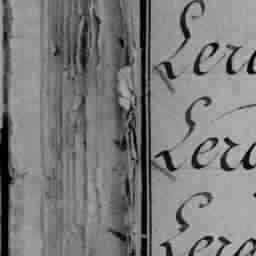 Lera
Lera
Lera